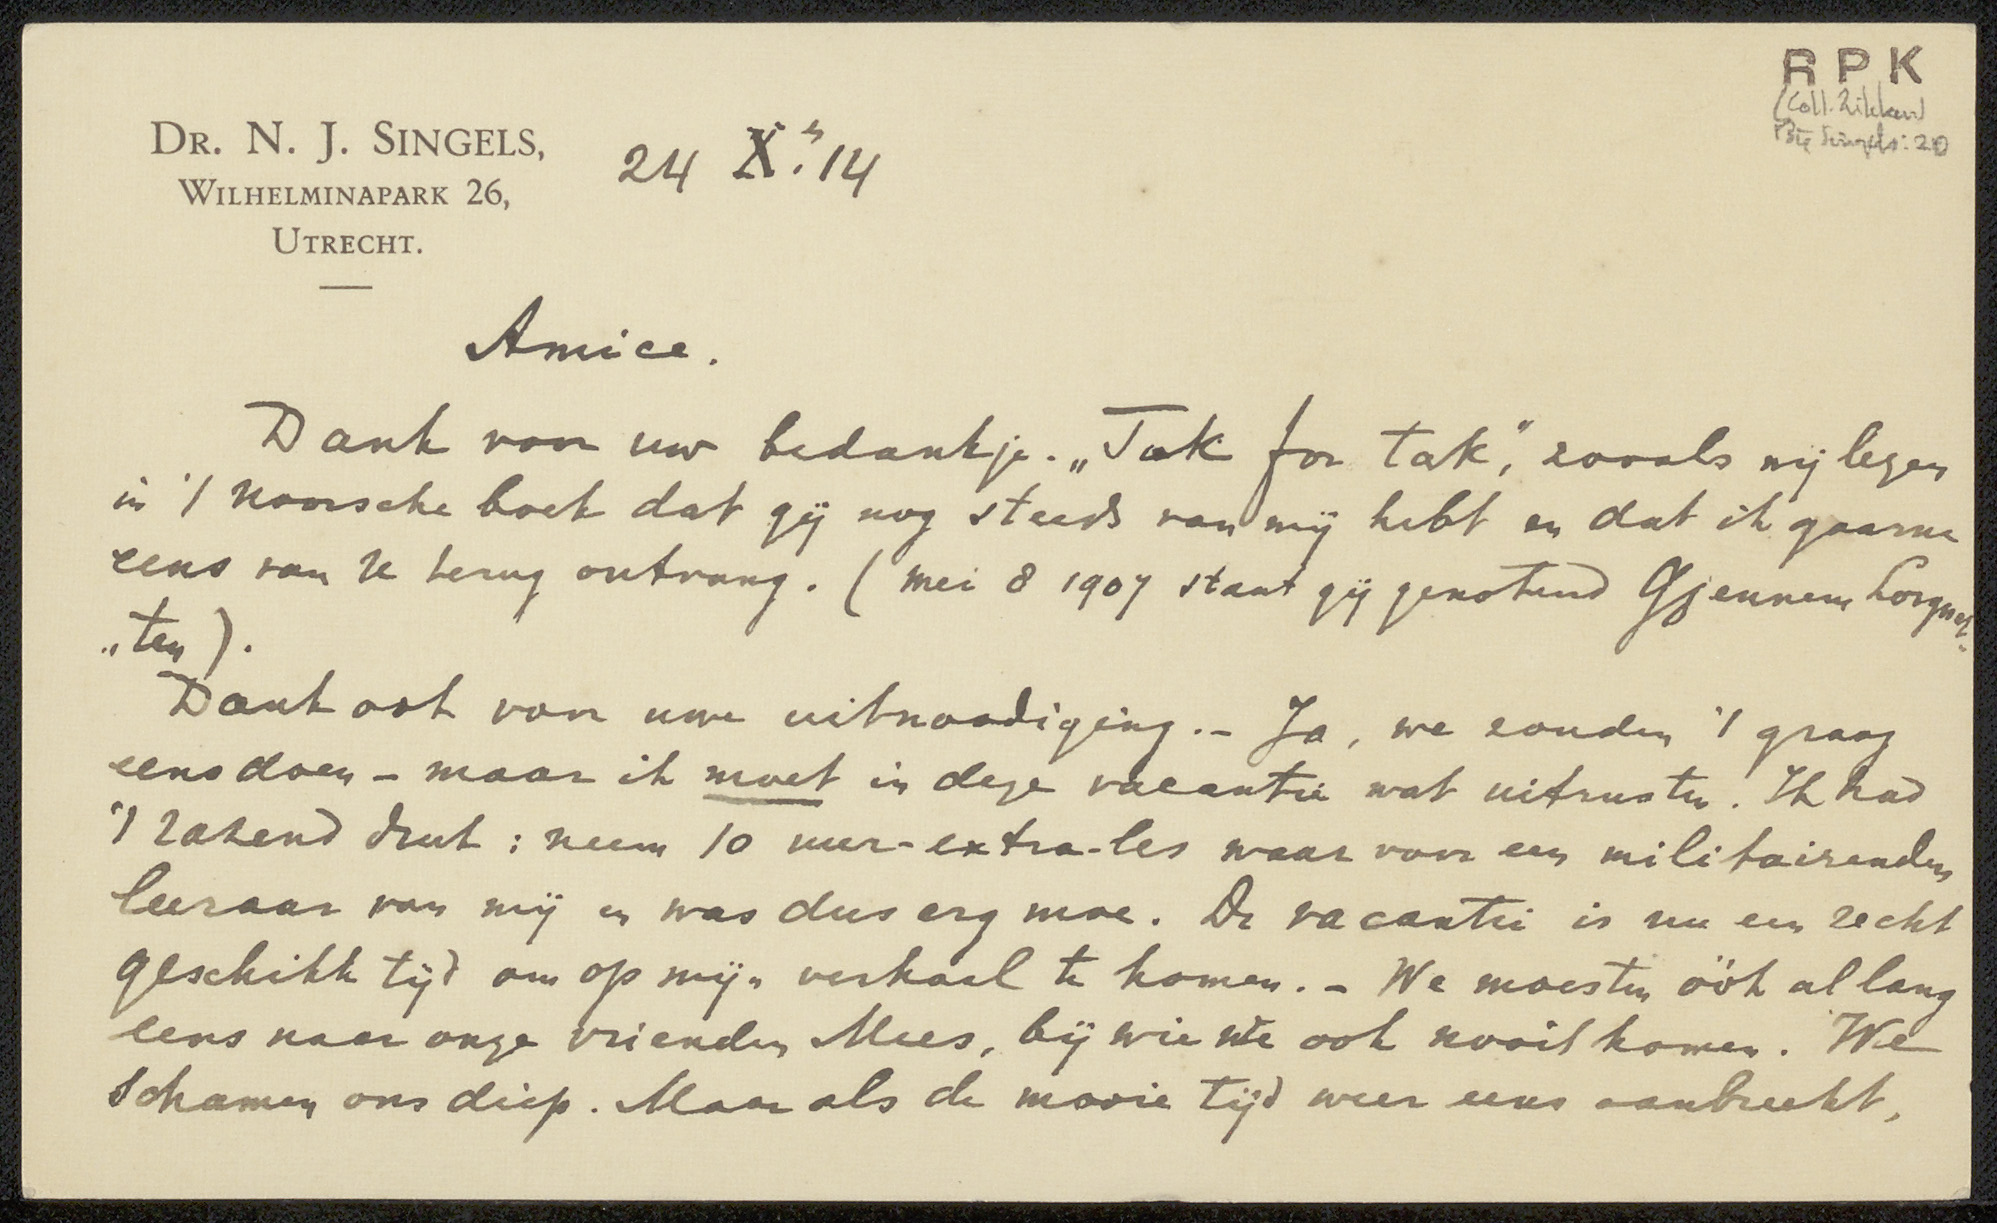 R P K
(Coll. Zilcken)
Bte Singels: 20
DR. N. J. SINGELS,
WILHELMINAPARK 26,
UTRECHT.
24 Xr. 14
Amice.
Dank voor uw bedankje. „Tak for tak”, zooals wij lezen
in 't Noorsche boek dat gij nog steeds van mij hebt en dat ik gaarne
eens van U terug ontvang. (Mei 8 1907 staat gij genoteerd Gjennem Lorgnet-
„ten).
Dank ook voor uwe uitnoodiging. - Ja, we zouden 't graag
eens doen - maar ik moet in deze vacantie wat uitrusten. Ik had
't razend druk: neem 10 uur-extra-les waar voor een militairenden
leeraar van mij en was dus erg moe. De vacantie is nu een recht
geschikte tijd om op mijn verhaal te komen. - We moesten óók al lang
eens naar onze vrienden Mees, bij wie we ook nooit komen. We
schamen ons diep. Maar als de mooie tijd weer eens aanbreekt,